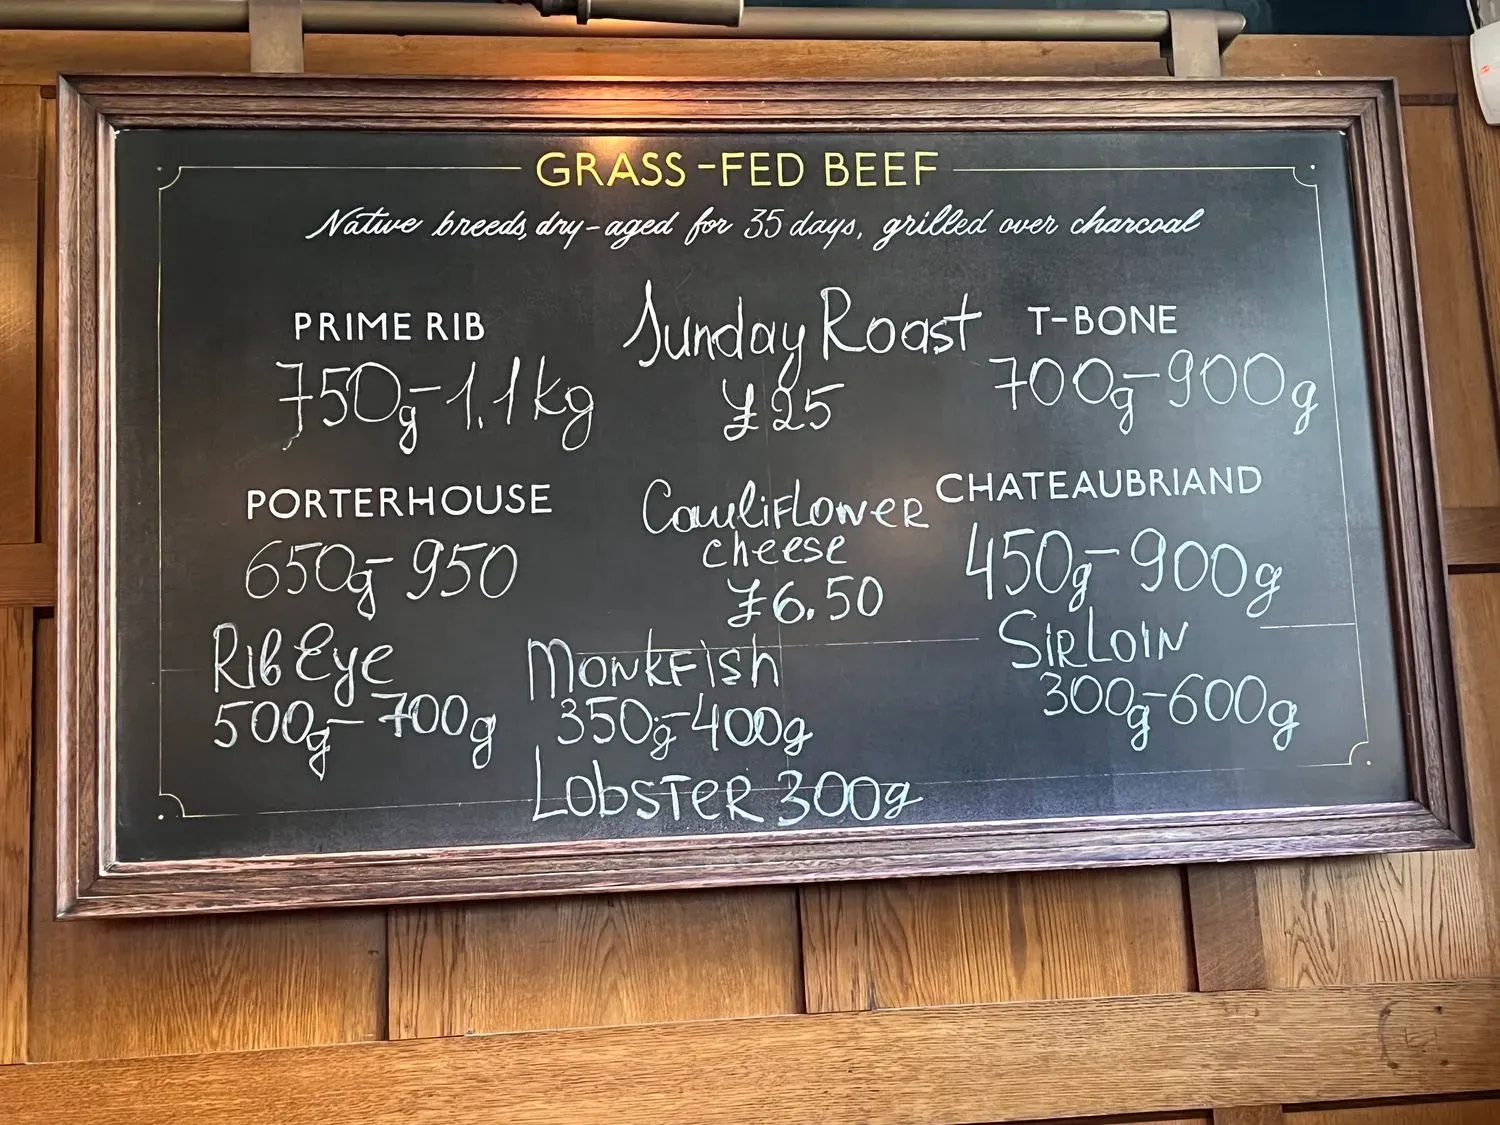 GRASS-FED BEEF
Native breeds, dry-aged for 35 days, grilled over charcoal
PRIME RIB
750g-1.1kg
Sunday Roast
£25
T-BONE
700g-900g
PORTERHOUSE
650g-950
Cauliflower
cheese
£6.50
CHATEAUBRIAND
450g-900g
Rib Eye
500g-700g
Monkfish
350g-400g
Lobster 300g
Sirloin
300g-600g